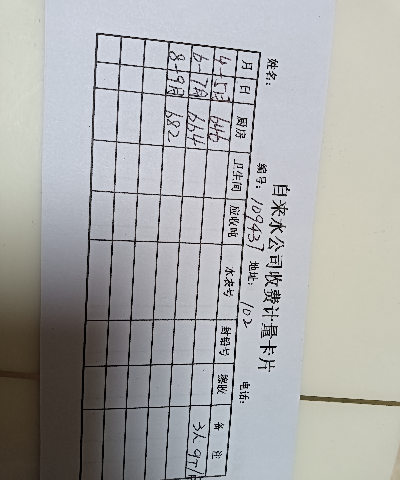 自来水公司收费计量卡片
姓名： 编号：109437 地址：102 电话：
月 日 厨房 卫生间 应收吨 水表号 封铅号 缴收 备注
4-5月 646 3人9T/月
6-7月 664
8-9月 682